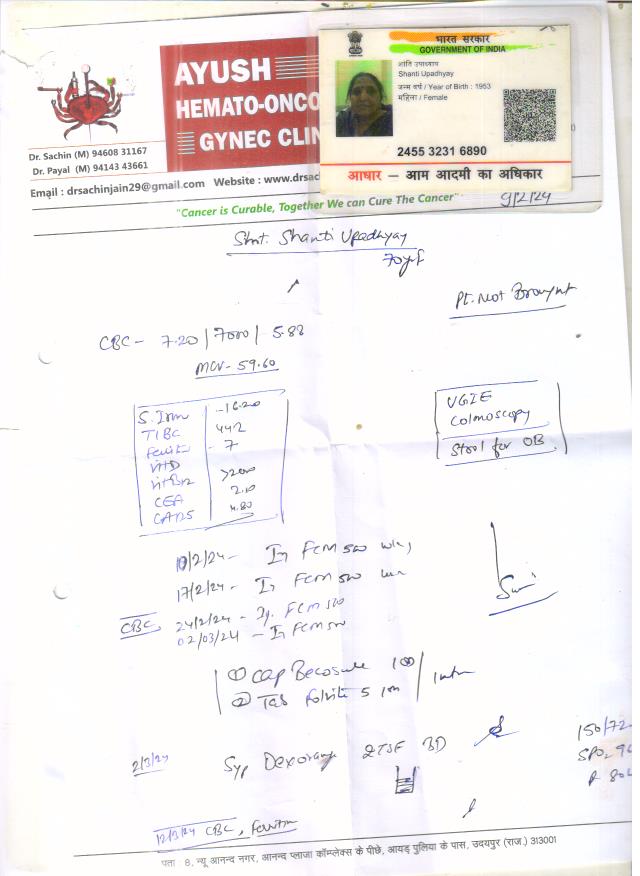 AYUSH
HEMATO-ONCO
GYNEC CLIN
Dr. Sachin (M) 94608 31167
Dr. Payal (M) 94143 43661
Email : drsachinjain29@gmail.com Website : www.drsac
"Cancer is Curable, Together We can Cure The Cancer"
भारत सरकार
GOVERNMENT OF INDIA
शांति उपाध्याय
Shanti Upadhyay
जन्म वर्ष / Year of Birth : 1953
महिला / Female
2455 3231 6890
आधार – आम आदमी का अधिकार
9/2/24
Smt. Shanti Upadhyay
70yrf
Pt. Not Brought
CBC - 7.20 / 7000 / 5.88
MCV - 59.60
S. Iron - 16.20
TIBC 442
Ferritin - 7
Vit D
Vit B12 >2000
CEA 2.10
CA125 4.80
UGIE
Colonoscopy
Stool for OB
10/2/24 - Inj FCM 500
17/2/24 - Inj FCM 500
CBC 24/2/24 - Inj. FCM 500
02/03/24 - Inj FCM 500
① Cap Becosule 1 OD
② Tab Folvite 5 1
2/3/24 Syp Dexorange 2TSF BD
150/72
SPO2 9
P 80
12/3/24 CBC, Ferritin
पता 8, न्यू आनन्द नगर, आनन्द प्लाजा कॉम्प्लेक्स के पीछे, आयड़ पुलिया के पास, उदयपुर (राज.) 313001